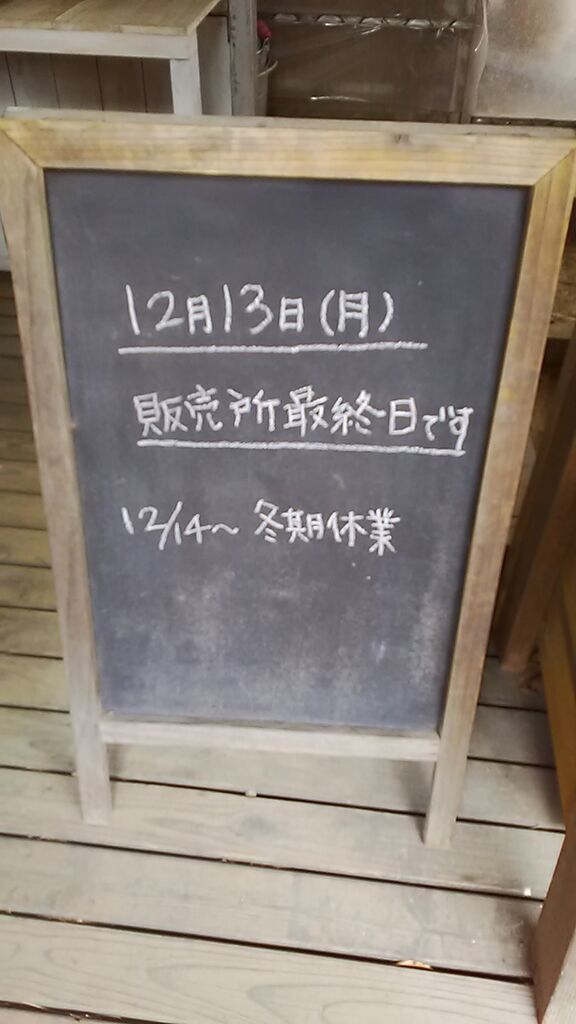 12月13日(月)
販売所最終日です
12/14～ 冬期休業